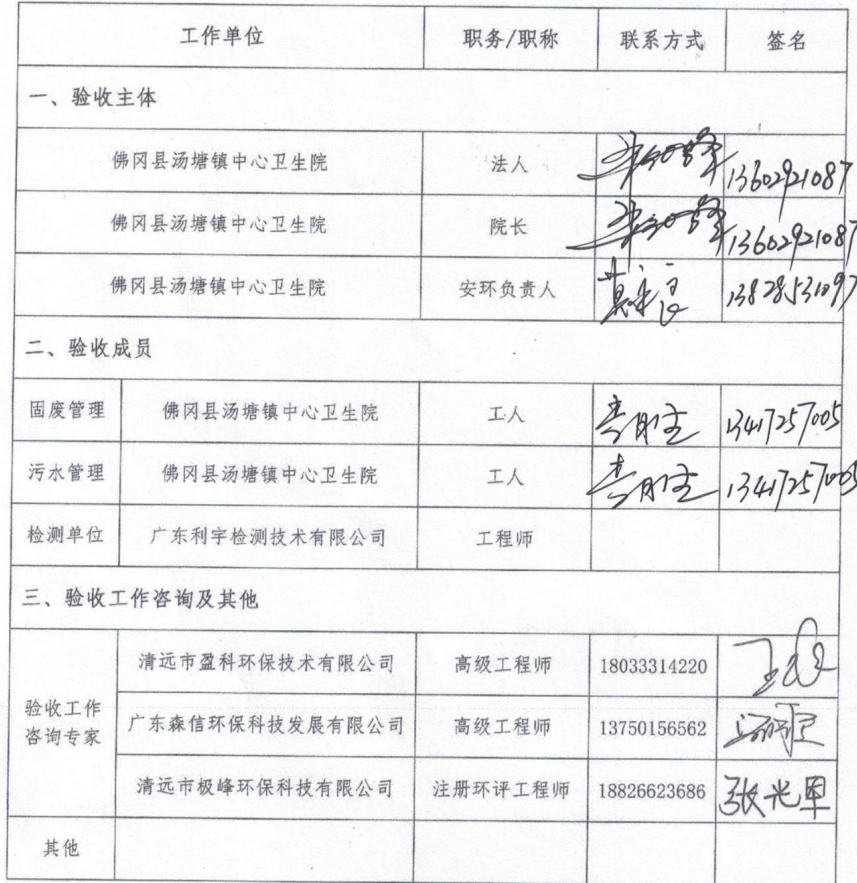 工作单位 职务/职称 联系方式 签名
一、验收主体
佛冈县汤塘镇中心卫生院 法人 13602921087
佛冈县汤塘镇中心卫生院 院长 13602921087
佛冈县汤塘镇中心卫生院 安环负责人 13828531097
二、验收成员
固废管理 佛冈县汤塘镇中心卫生院 工人 13417257005
污水管理 佛冈县汤塘镇中心卫生院 工人 13417257005
检测单位 广东利宇检测技术有限公司 工程师
三、验收工作咨询及其他
验收工作
咨询专家
清远市盈科环保技术有限公司 高级工程师 18033314220
广东森信环保科技发展有限公司 高级工程师 13750156562
清远市极峰环保科技有限公司 注册环评工程师 18826623686 张光恩
其他